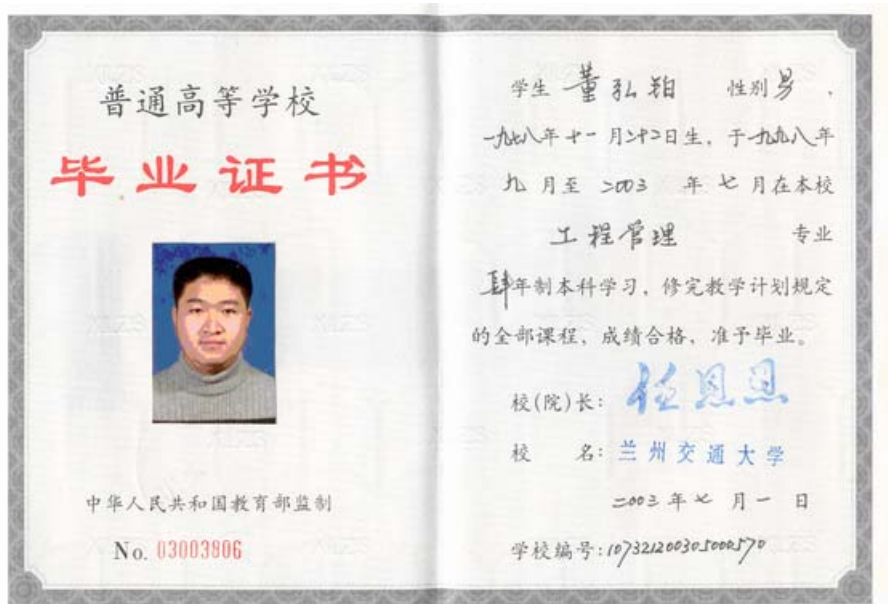 普通高等学校
毕业证书
中华人民共和国教育部监制
No. 03003806
学生 董弘铂 性别男,
一九七八年十一月二十二日生,于一九九八年
九月至 2003 年七月在本校
工程管理 专业
肆年制本科学习,修完教学计划规定
的全部课程,成绩合格,准予毕业。
校(院)长:任恩恩
校 名:兰州交通大学
二〇〇三年七月一日
学校编号:107321200305000570